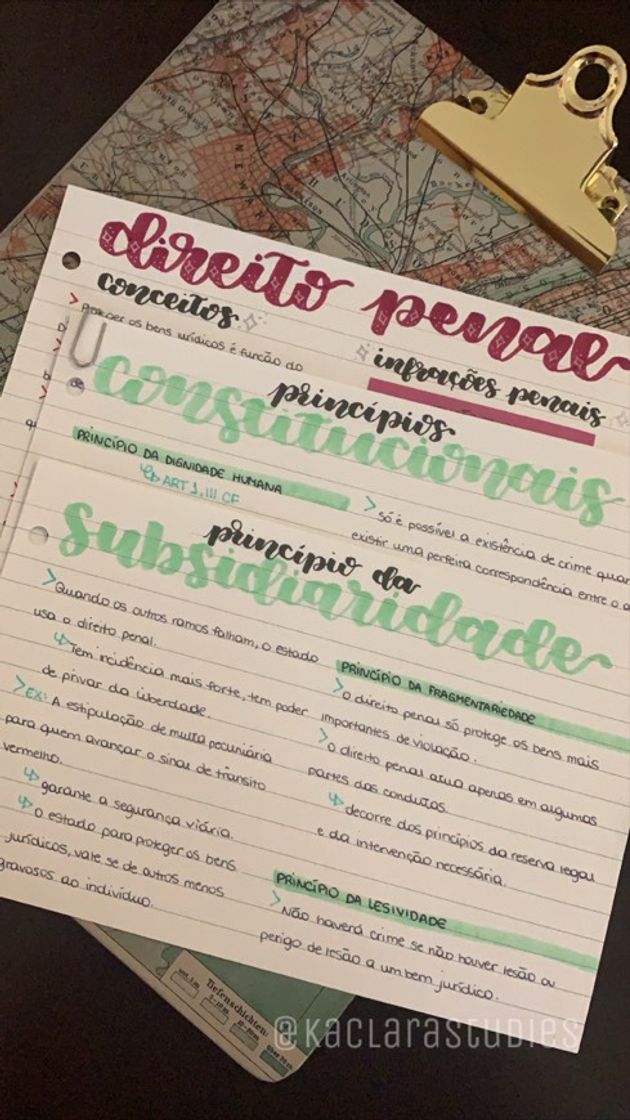 direito penal
conceitos
Proteger os bens jurídicos é função do
infrações penais
princípios
constitucionais
PRINCÍPIO DA DIGNIDADE HUMANA
ART 1, III CF
Só é possível a existência de crime quan
existir uma perfeita correspondência entre o a
princípio da
Subsidiaridade
Quando os outros ramos falham, o estado
usa o direito penal.
Tem incidência mais forte, tem poder
de privar da liberdade.
EX: A estipulação de multa pecuniária
para quem avançar o sinal de trânsito
vermelho.
garante a segurança viária.
O estado para proteger os bens
jurídicos, vale se de outros menos
gravosos ao indivíduo.
PRINCÍPIO DA FRAGMENTARIEDADE
O direito penal só protege os bens mais
importantes de violação.
O direito penal atua apenas em algumas
partes das condutas.
decorre dos princípios da reserva legal
e da intervenção necessária.
PRINCÍPIO DA LESIVIDADE
Não haverá crime se não houver lesão ou
perigo de lesão a um bem jurídico.
NEWARK
Tiefenschichten
@KACLARASTUDIES